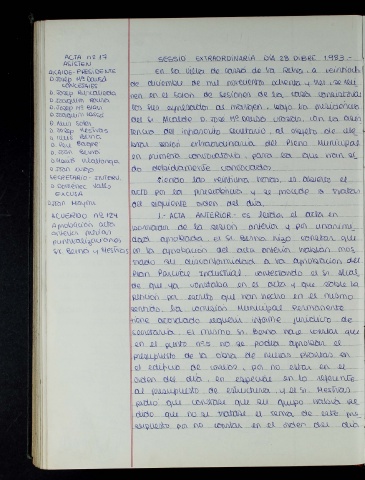 ACTA nº 17
ASISTEN
ALCALDE-PRESIDENTE
D. Josep Mª
CONCEJALES
D. Josep
D. Joaquim
D. Josep Mª
D. Joaquim
D. Josep Mestres
D. Lluís Berno
D. Pere
D. Joan
D. Manuel
D. Joan
SECRETARIO - INTERV.
D. Domènec Valls
EXCUSA
D. Joan
ACUERDO Nº 124
Aprobación acta
anterior previas
puntualizaciones
Sr. Berno y Mestres
SESSIO EXTRAORDINARIA DIA 29 DICBRE. 1.983.-
En la Villa de de la Selva, a veintinueve
de diciembre de mil novecientos ochenta y tres, se reu-
nen en el salón de sesiones de la casa consistorial
los Sres expresados al margen, bajo la presidencia
del Sr. Alcalde D. José Mª con la asis-
tencia del infrascrito secretario, al objeto de cele-
brar sesión extraordinaria del Pleno Municipal
en primera convocatoria, para la que han si-
do debidamente convocados.
Siendo las veintiuna horas, es abierto el
acto por la presidencia y se procede a tratar
del siguiente orden del día.
1.- ACTA ANTERIOR.- Es leído el acta en
borrador de la sesión anterior y por unanimi-
dad aprobada, el Sr. Berno hizo constar que
en la aprobación del acta anterior habían mos-
trado su disconformidad a la aprobación del
Plan Parcial Industrial contestando el Sr. Alcal-
de que ya constaba en el acta y que sobre la
petición por escrito que han hecho en el mismo
sentido, la Comisión Municipal Permanente
tiene acordado requerir informe jurídico de
secretaría. El mismo Sr. Berno hace constar que
en el punto nº 5 no se podía aprobar el
presupuesto de la obra de nuevas plantas en
el edificio de por no estar en el
orden del día, en especial en lo referente
al presupuesto de estructura y el Sr. Mestres
pidió que constase que su grupo había pe-
dido que no se tratase el tema de este pre-
supuesto por no constar en el orden del día